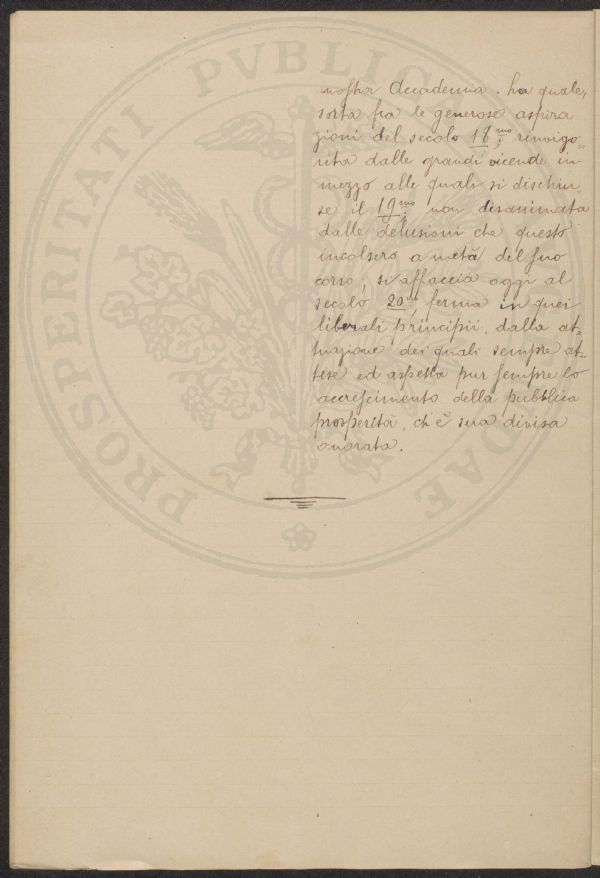 nostra Accademia. La quale,
sorta fra le generose aspira
zioni del secolo 18mo; rinvigo-
rita dalle grandi vicende in
mezzo alle quali si dischiu-
se il 19mo non disanimata
dalle delusioni che questo
incolsero a metà del suo
corso, si affaccia oggi al
secolo 20mo, ferma in quei
liberali principii, dalla at-
tuazione dei quali sempre at-
tese ed aspetta pur sempre lo
accrescimento della pubblica
prosperità, ch'è sua divisa
onorata.
PROSPERITATI PVBLICAE